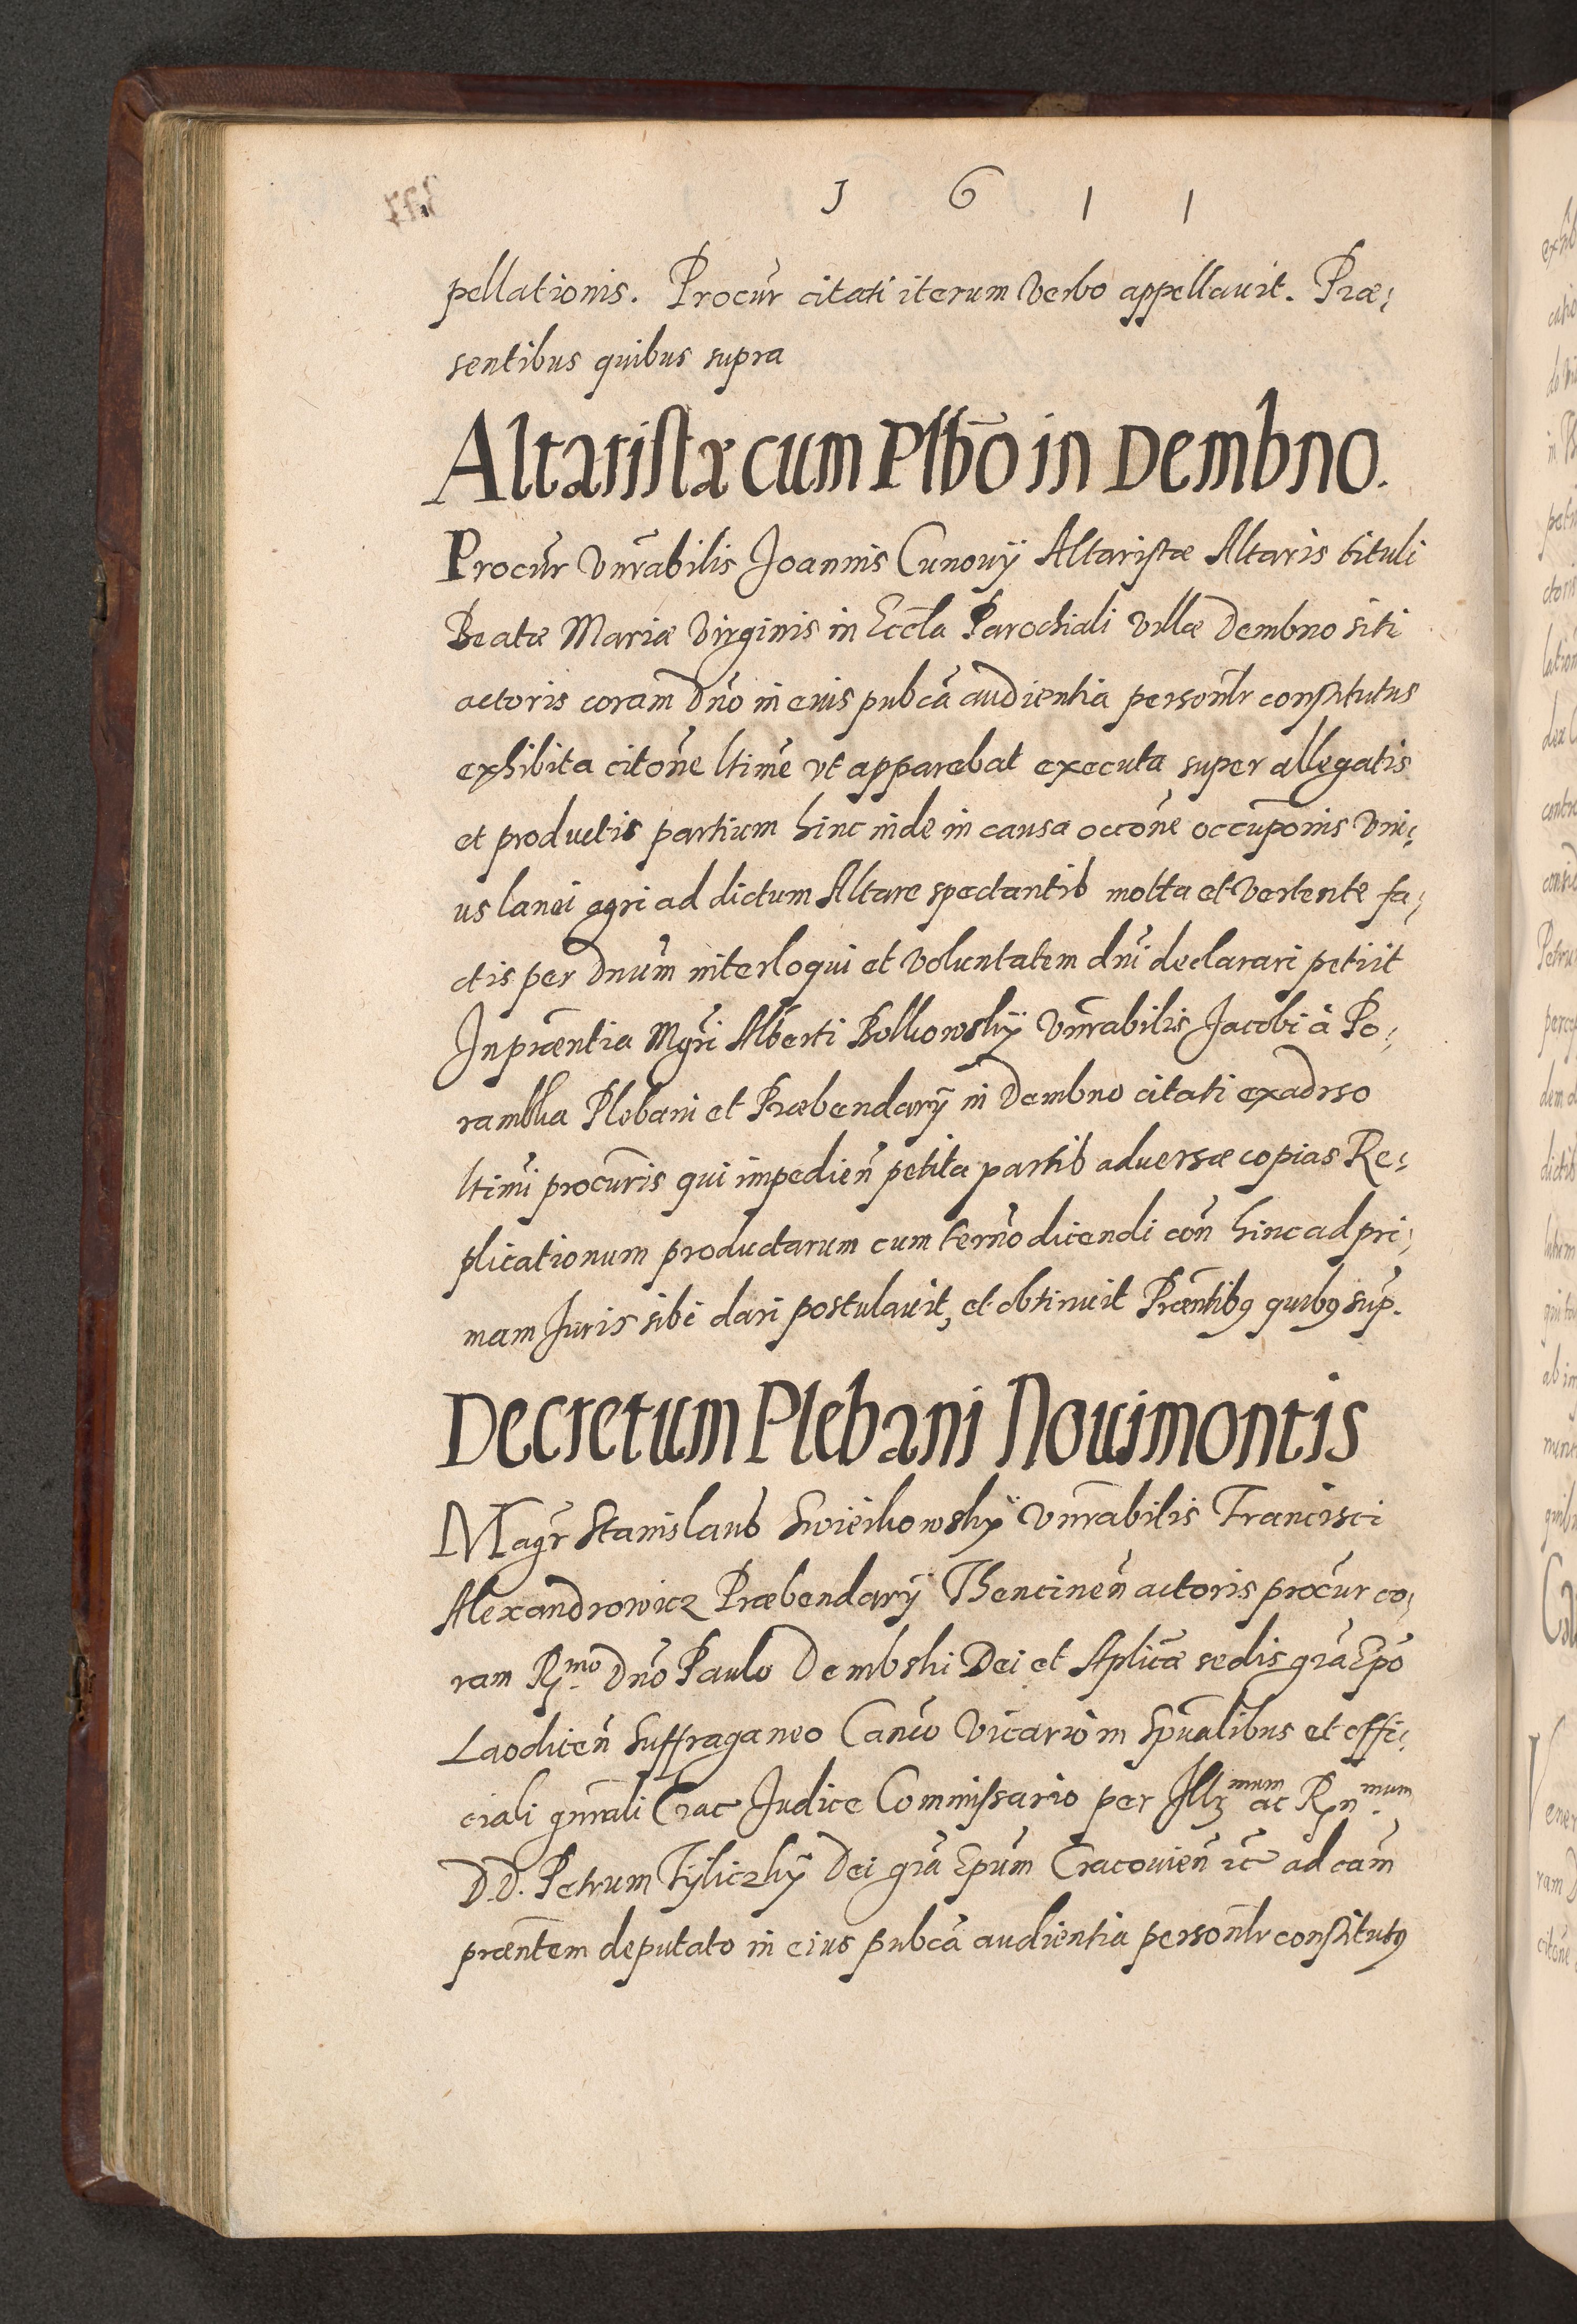 1 6 1 1
pellationis. Procur̃ citati iterum Verbo appellauit. Præ;
sentibus quibus supra
Altaristæ cum Plb̃o in Dembno.
Procur̃ Vnr̃abilis Joannis Cunovÿ Altaristæ Altaris tituli
Beatæ Mariæ Virginis in Eccl̃a Parochiali Villæ Dembno siti
actoris coram Dño in eius pubcã audientia personl̃r constitutus
exhibita citoñe ltimẽ vt apparebat executa super allegatis
et productis partium hinc inde in causa occoñe occupõnis Vni;
us lanei agri ad dictum Altare spectantib motta et Vertente fa;
ctis per Dnũm interloqui et Voluntatem dñi declarari petiit
In præñtia Mgr̃i Alb̃erti Bolkowskÿ Vnr̃abilis Jacobi à Po;
rambka Plebani et Præbendarÿ in Dembno citati exadr̃so
ltimĩ procur̃is qui impedieñ petita partib aduersæ copias Re;
plicationum productarum cum ter̃no dicendi coñ hinc ad pri;
mam Juris sibi dari postulauit, et obtinuit Præñtibꝰ quibꝰ sup̃.
Decretum Plebani Nouimontis
Magr̃ Stanislaus Swieikowskÿ Vnr̃abilis Francisci
Alexandrowicz Præbendarÿ Thencineñ actoris procur̃ co;
ram R.mo Dño Paulo Dembski Dei et Aplicæ̃ sedis grã Epõ
Laodiceñ Suffraganeo Canco̊ Vicario in Spũalibus et offi;
ciali gnr̃ali Crac Judice Commissario per Illʒmum ac R.nmum
D.D. Petrum Tÿliczkÿ Dei grã Epũm Cracouieñ ꝛc ad cam̃
præñtem deputato in eius pubcã audientia personl̃r constitutꝰ